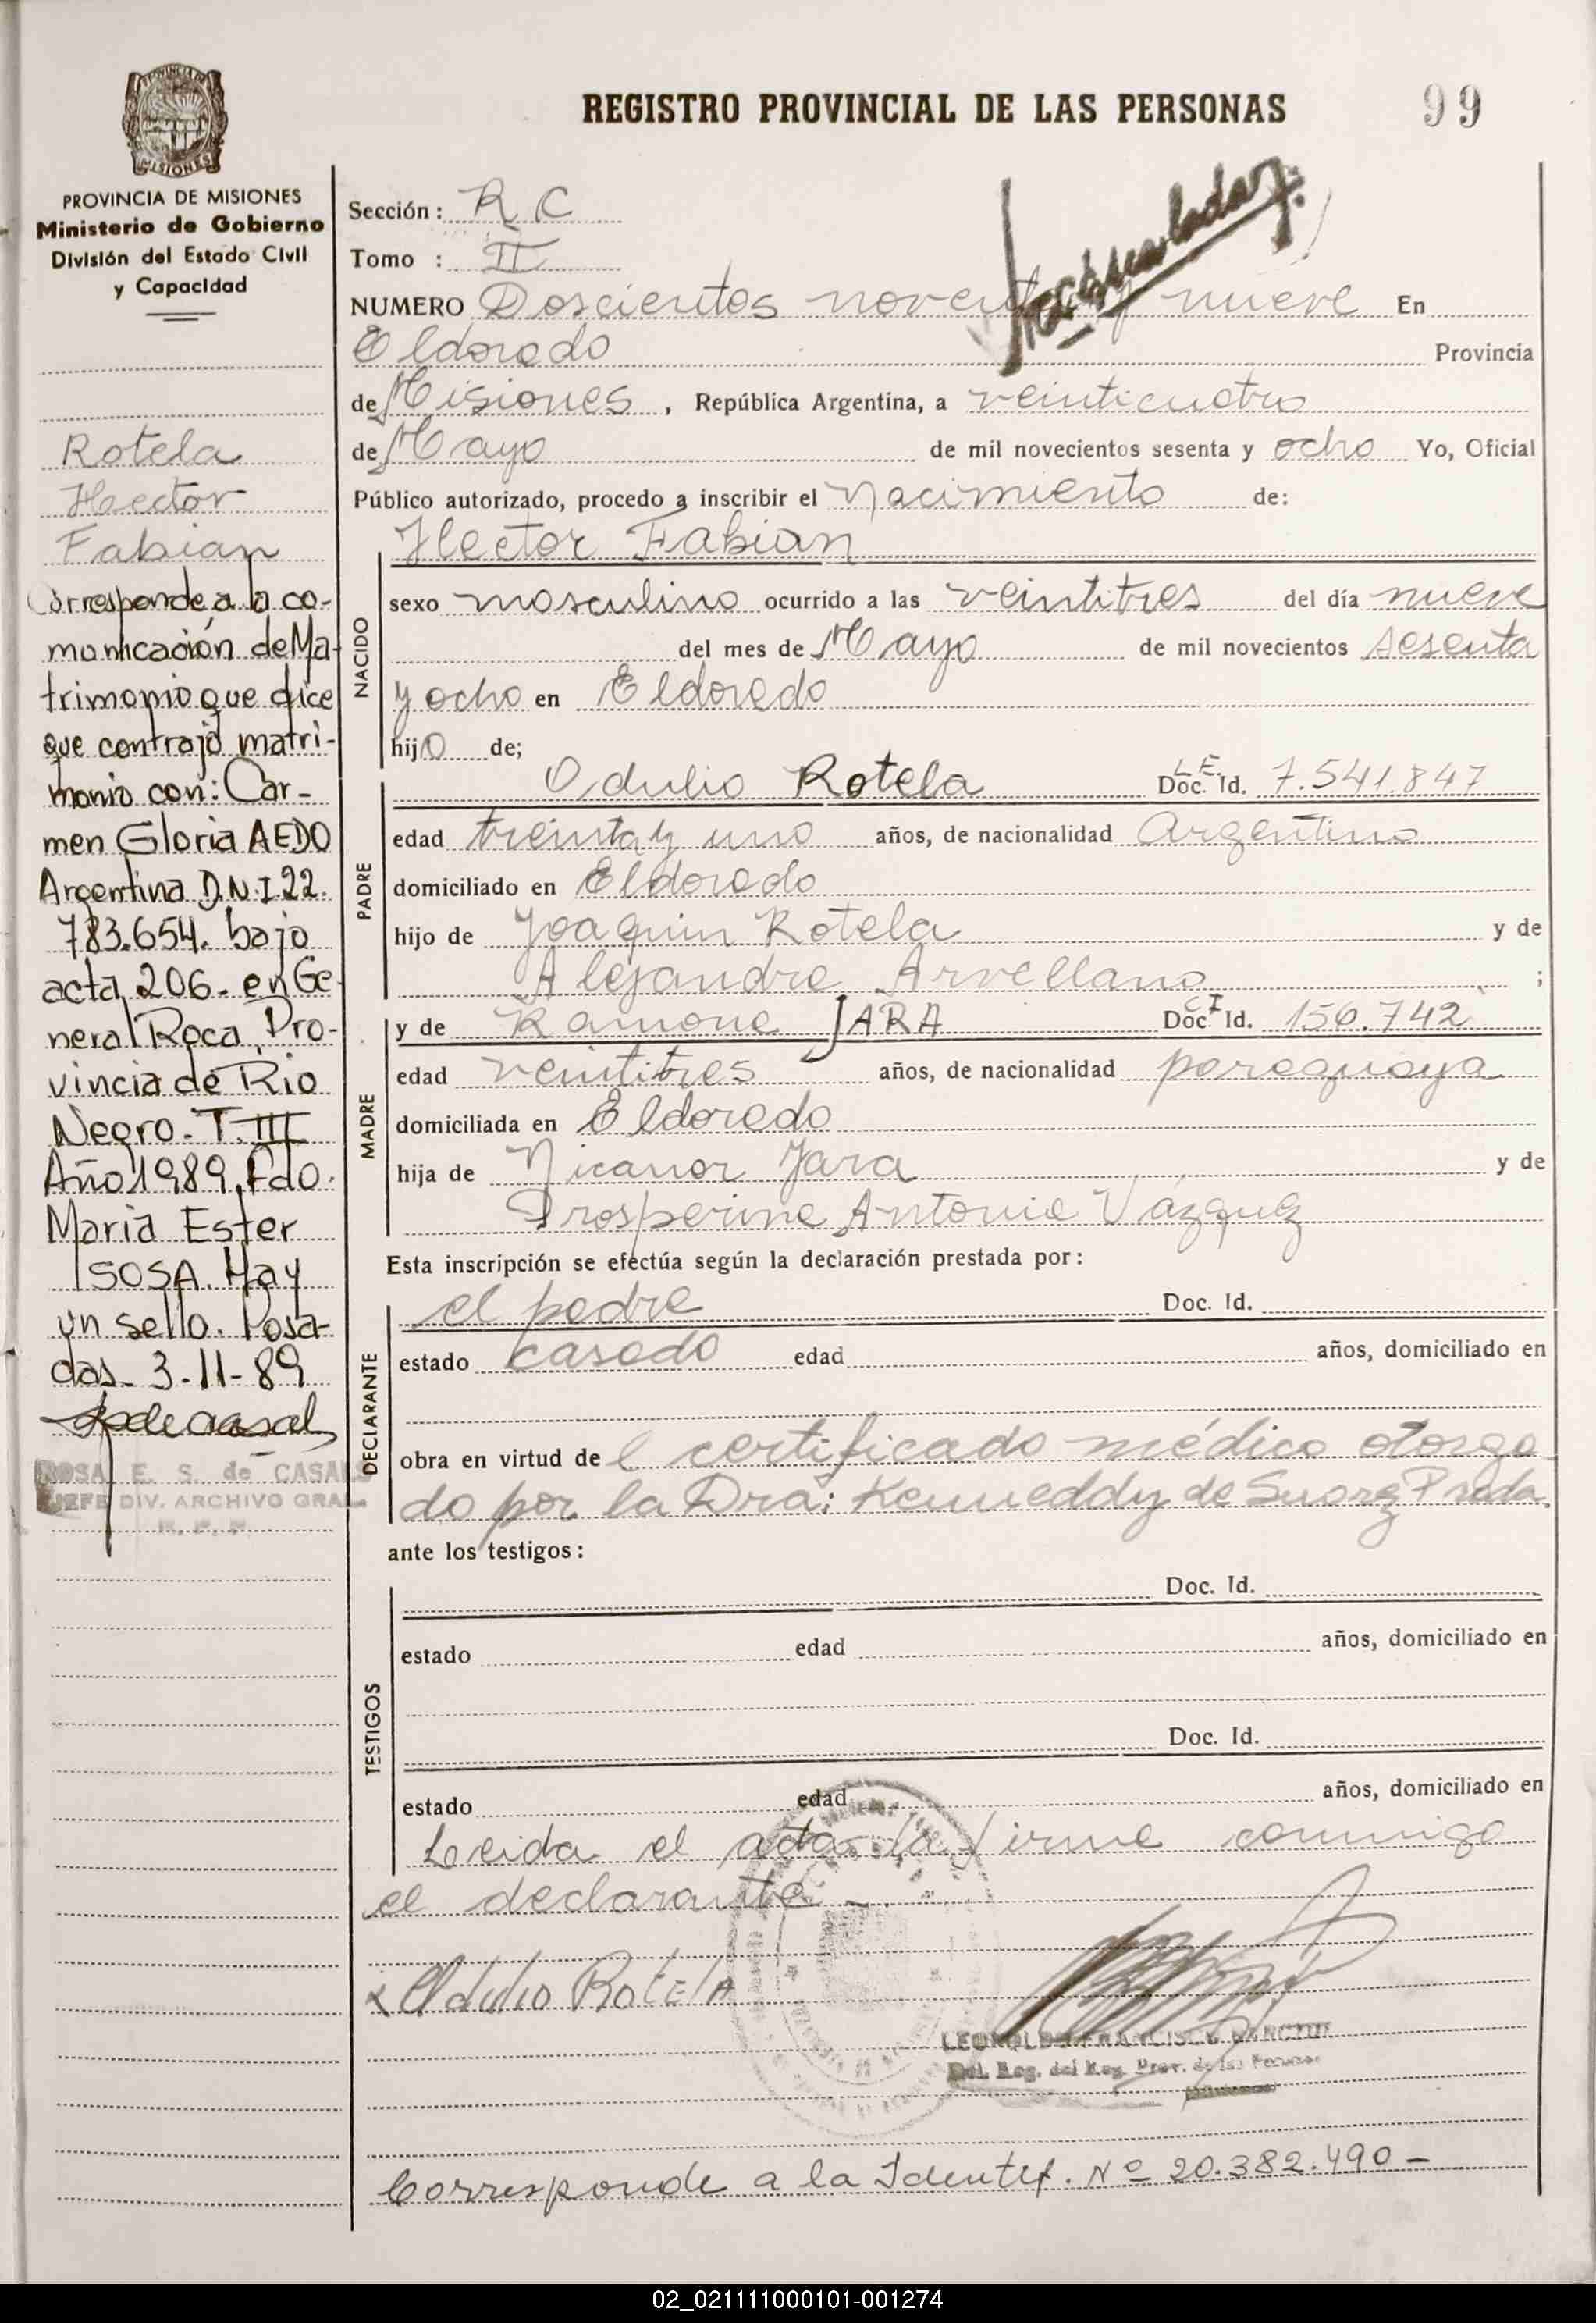 REGISTRO PROVINCIAL DE LAS PERSONAS
99
PROVINCIA DE MISIONES
Ministerio de Gobierno
División del Estado Civil
y Capacidad
Rotela
Hector
Fabian
Corresponde a la co-
municación de Ma-
trimonio que dice
que contrajo matri-
monio con: Car-
men Gloria AEDO
Argentina D.N.I 22.
783.654. bajo
acta 206. en Ge-
neral Roca, Pro-
vincia de Rio
Negro. T. III
Año 1989. Fdo.
Maria Ester
SOSA. Hay
un sello. Posa-
das. 3-11-89
ROSA E. S. de CASALS
JEFE DIV. ARCHIVO GRAL.
R. P. P.
Sección: R C
Tomo : II
NUMERO Doscientos noventa y nueve En
Eldorado Provincia
de Misiones, República Argentina, a veinticuatro
de Mayo de mil novecientos sesenta y ocho Yo, Oficial
Público autorizado, procedo a inscribir el Nacimiento de:
NACIDO
Hector Fabian
sexo masculino ocurrido a las veintitres del día nueve
del mes de Mayo de mil novecientos sesenta
y ocho en Eldorado
hijo de;
PADRE
Odulio Rotela L.E. Doc. Id. 7.541.847
edad treinta y uno años, de nacionalidad Argentino
domiciliado en Eldorado
hijo de Joaquin Rotela y de
Alejandra Arvellano ;
MADRE
y de Ramona JARA C.I Doc. Id. 156.742
edad veintitres años, de nacionalidad paraguaya
domiciliada en Eldorado
hija de Nicanor Jara y de
Prosperina Antonia Vázquez
Esta inscripción se efectúa según la declaración prestada por:
DECLARANTE
el padre Doc. Id.
estado casado edad años, domiciliado en
obra en virtud de l certificado médico otorga
do por la Dra: Kenneddy de Suarez Prada.
ante los testigos:
TESTIGOS
Doc. Id.
estado edad años, domiciliado en
Doc. Id.
estado edad años, domiciliado en
Leida el acta, la firma conmigo
el declarante.
x Odulio Rotela
LEOPOLDO FRANCISCO
Del. Reg. del Reg. Prov. de las Personas
Corresponde a la Identif. Nº 20.382.490-
02_021111000101-001274